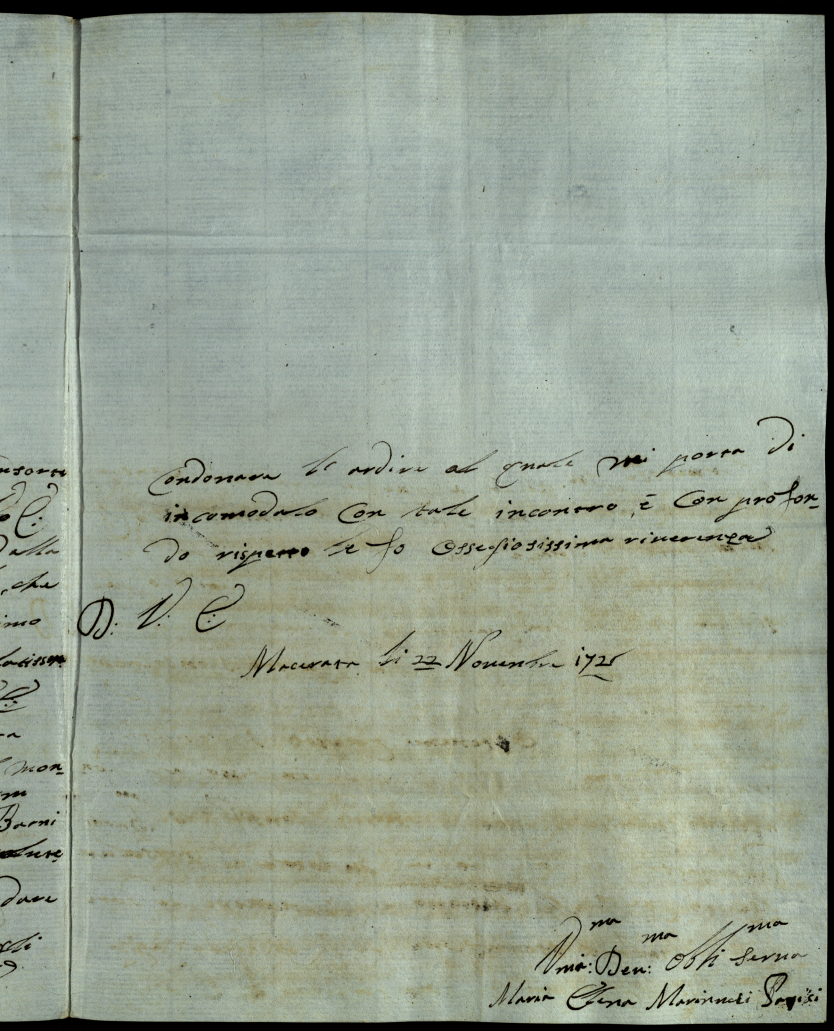 nsorte
C:
Dalla
, che
imo
latissm
mon=
Buoni
dare
Condonare le ardire al quale mi porta di
incomodalo Con tale incontro, è Con profon=
do rispetto le fo Ossequiosissima riverenza
D: V: C:
Macerata li 22 Novembre 172
Vma: Den: Obbli serva
ma ma ma
Maria Elena Marinuci